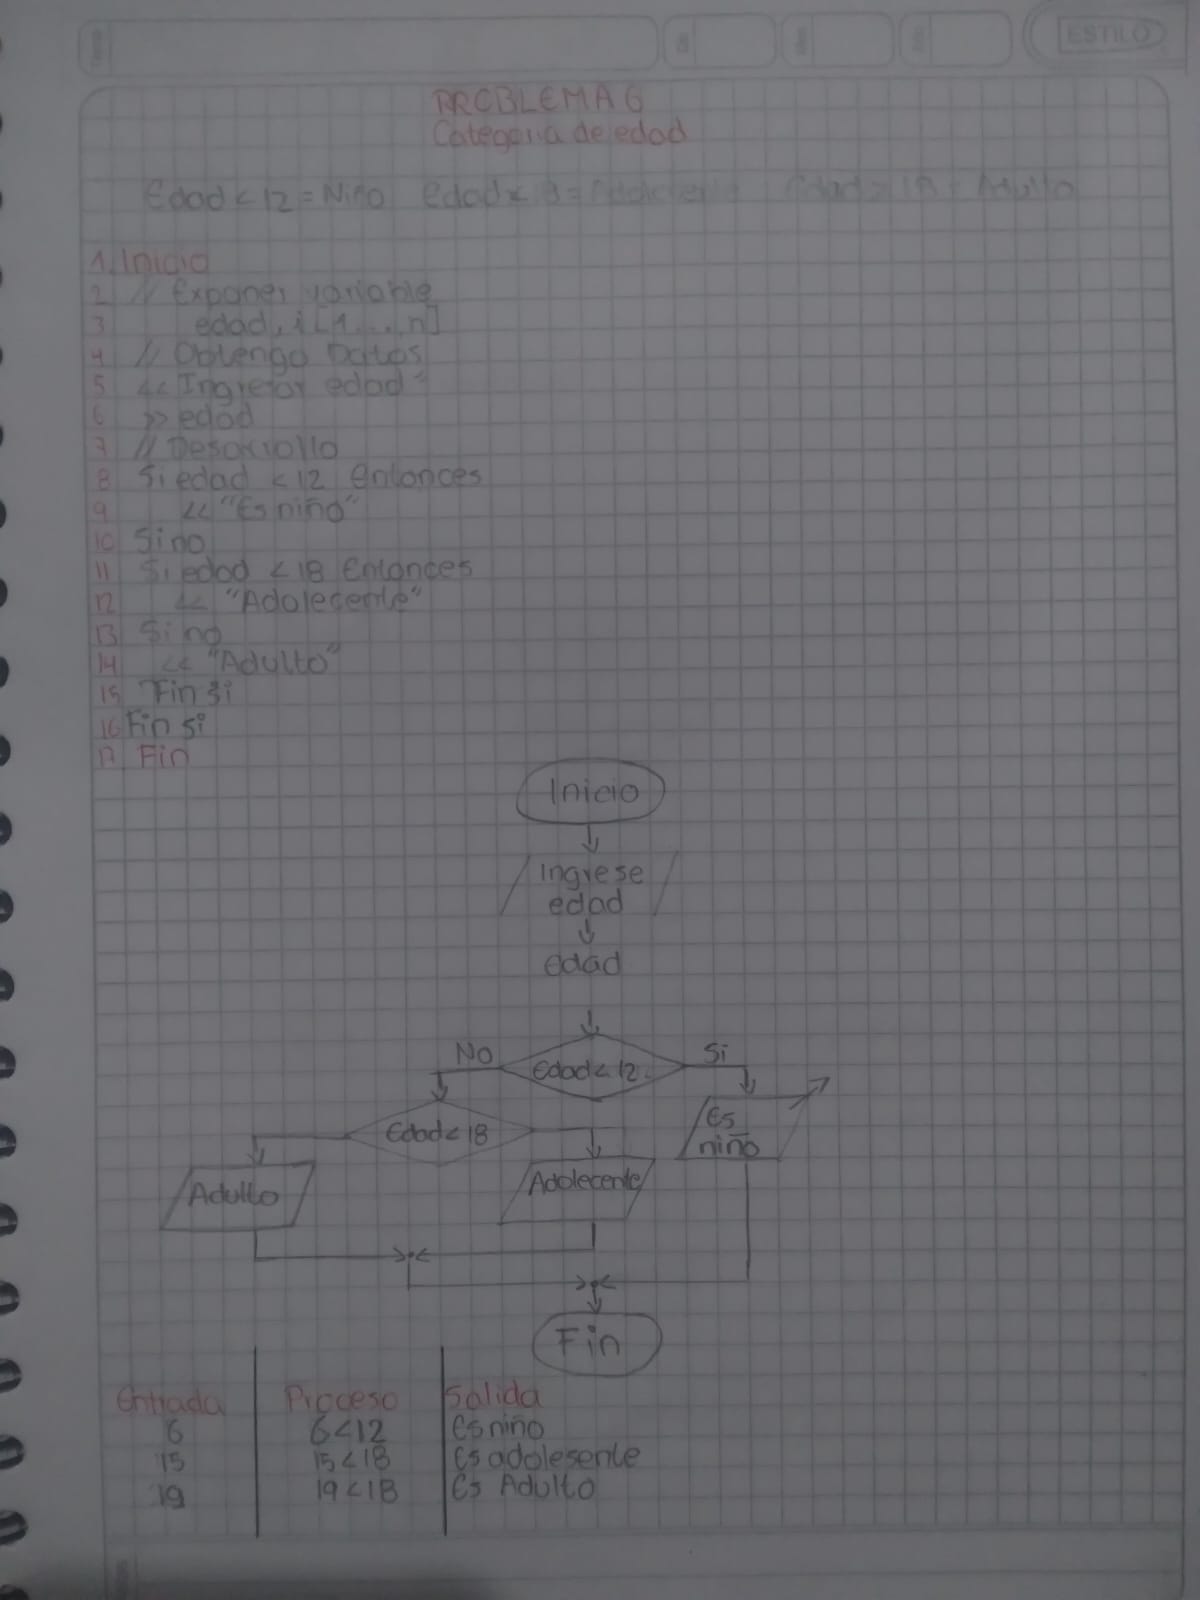 ESTILO
PROBLEMA 6
Categoria de edad
Edad < 12 = Niño Edad < 18 = Edad > 18 = Adulto
1. Inicio
2 // Exponer variable
3 edad, i [1...n]
4 // Obtengo Datos
5 << Ingresar edad"
6 >> edad
7 // Desarrollo
8 Si edad < 12 entonces
9 << "Es niño"
10 Sino
11 Si edad < 18 Entonces
12 << "Adolecente"
13 Sino
14 << "Adulto"
15 Fin si
16 Fin si
17 Fin
Inicio
Ingrese
edad
edad
No Edad < 12 Si
Edad < 18 Es
niño
Adulto Adolecente
Fin
Entrada Proceso Salida
6 6<12 Es niño
15 15<18 Es adolesente
19 19<18 Es Adulto